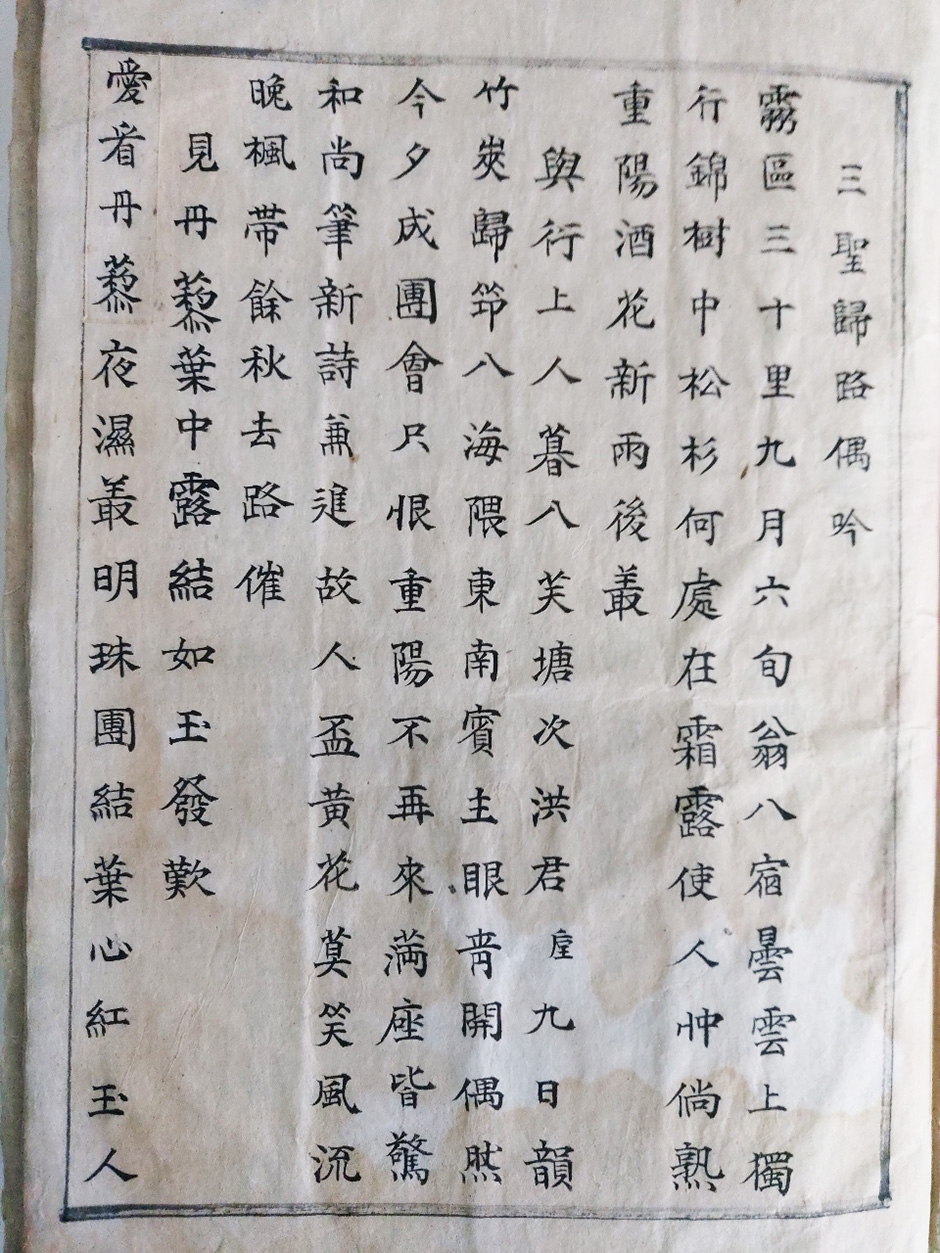 三聖歸路偶吟
霧區三十里九月六旬翁八宿曇雲上獨
行錦樹中松杉何處在霜露使人忡倘熟
重陽酒花新雨後叢
與行上人暮八芙塘次洪君㕓九日韻
竹爽歸笻八海隈東南賓主眼靑開偶然
今夕成團會只恨重陽不再來滿座皆驚
和尚筆新詩兼進故人盃黃花莫笑風流
晩楓帶餘秋去路催
見丹藜葉中露結如玉發歎
愛看丹藜夜濕叢明珠團結葉心紅玉人